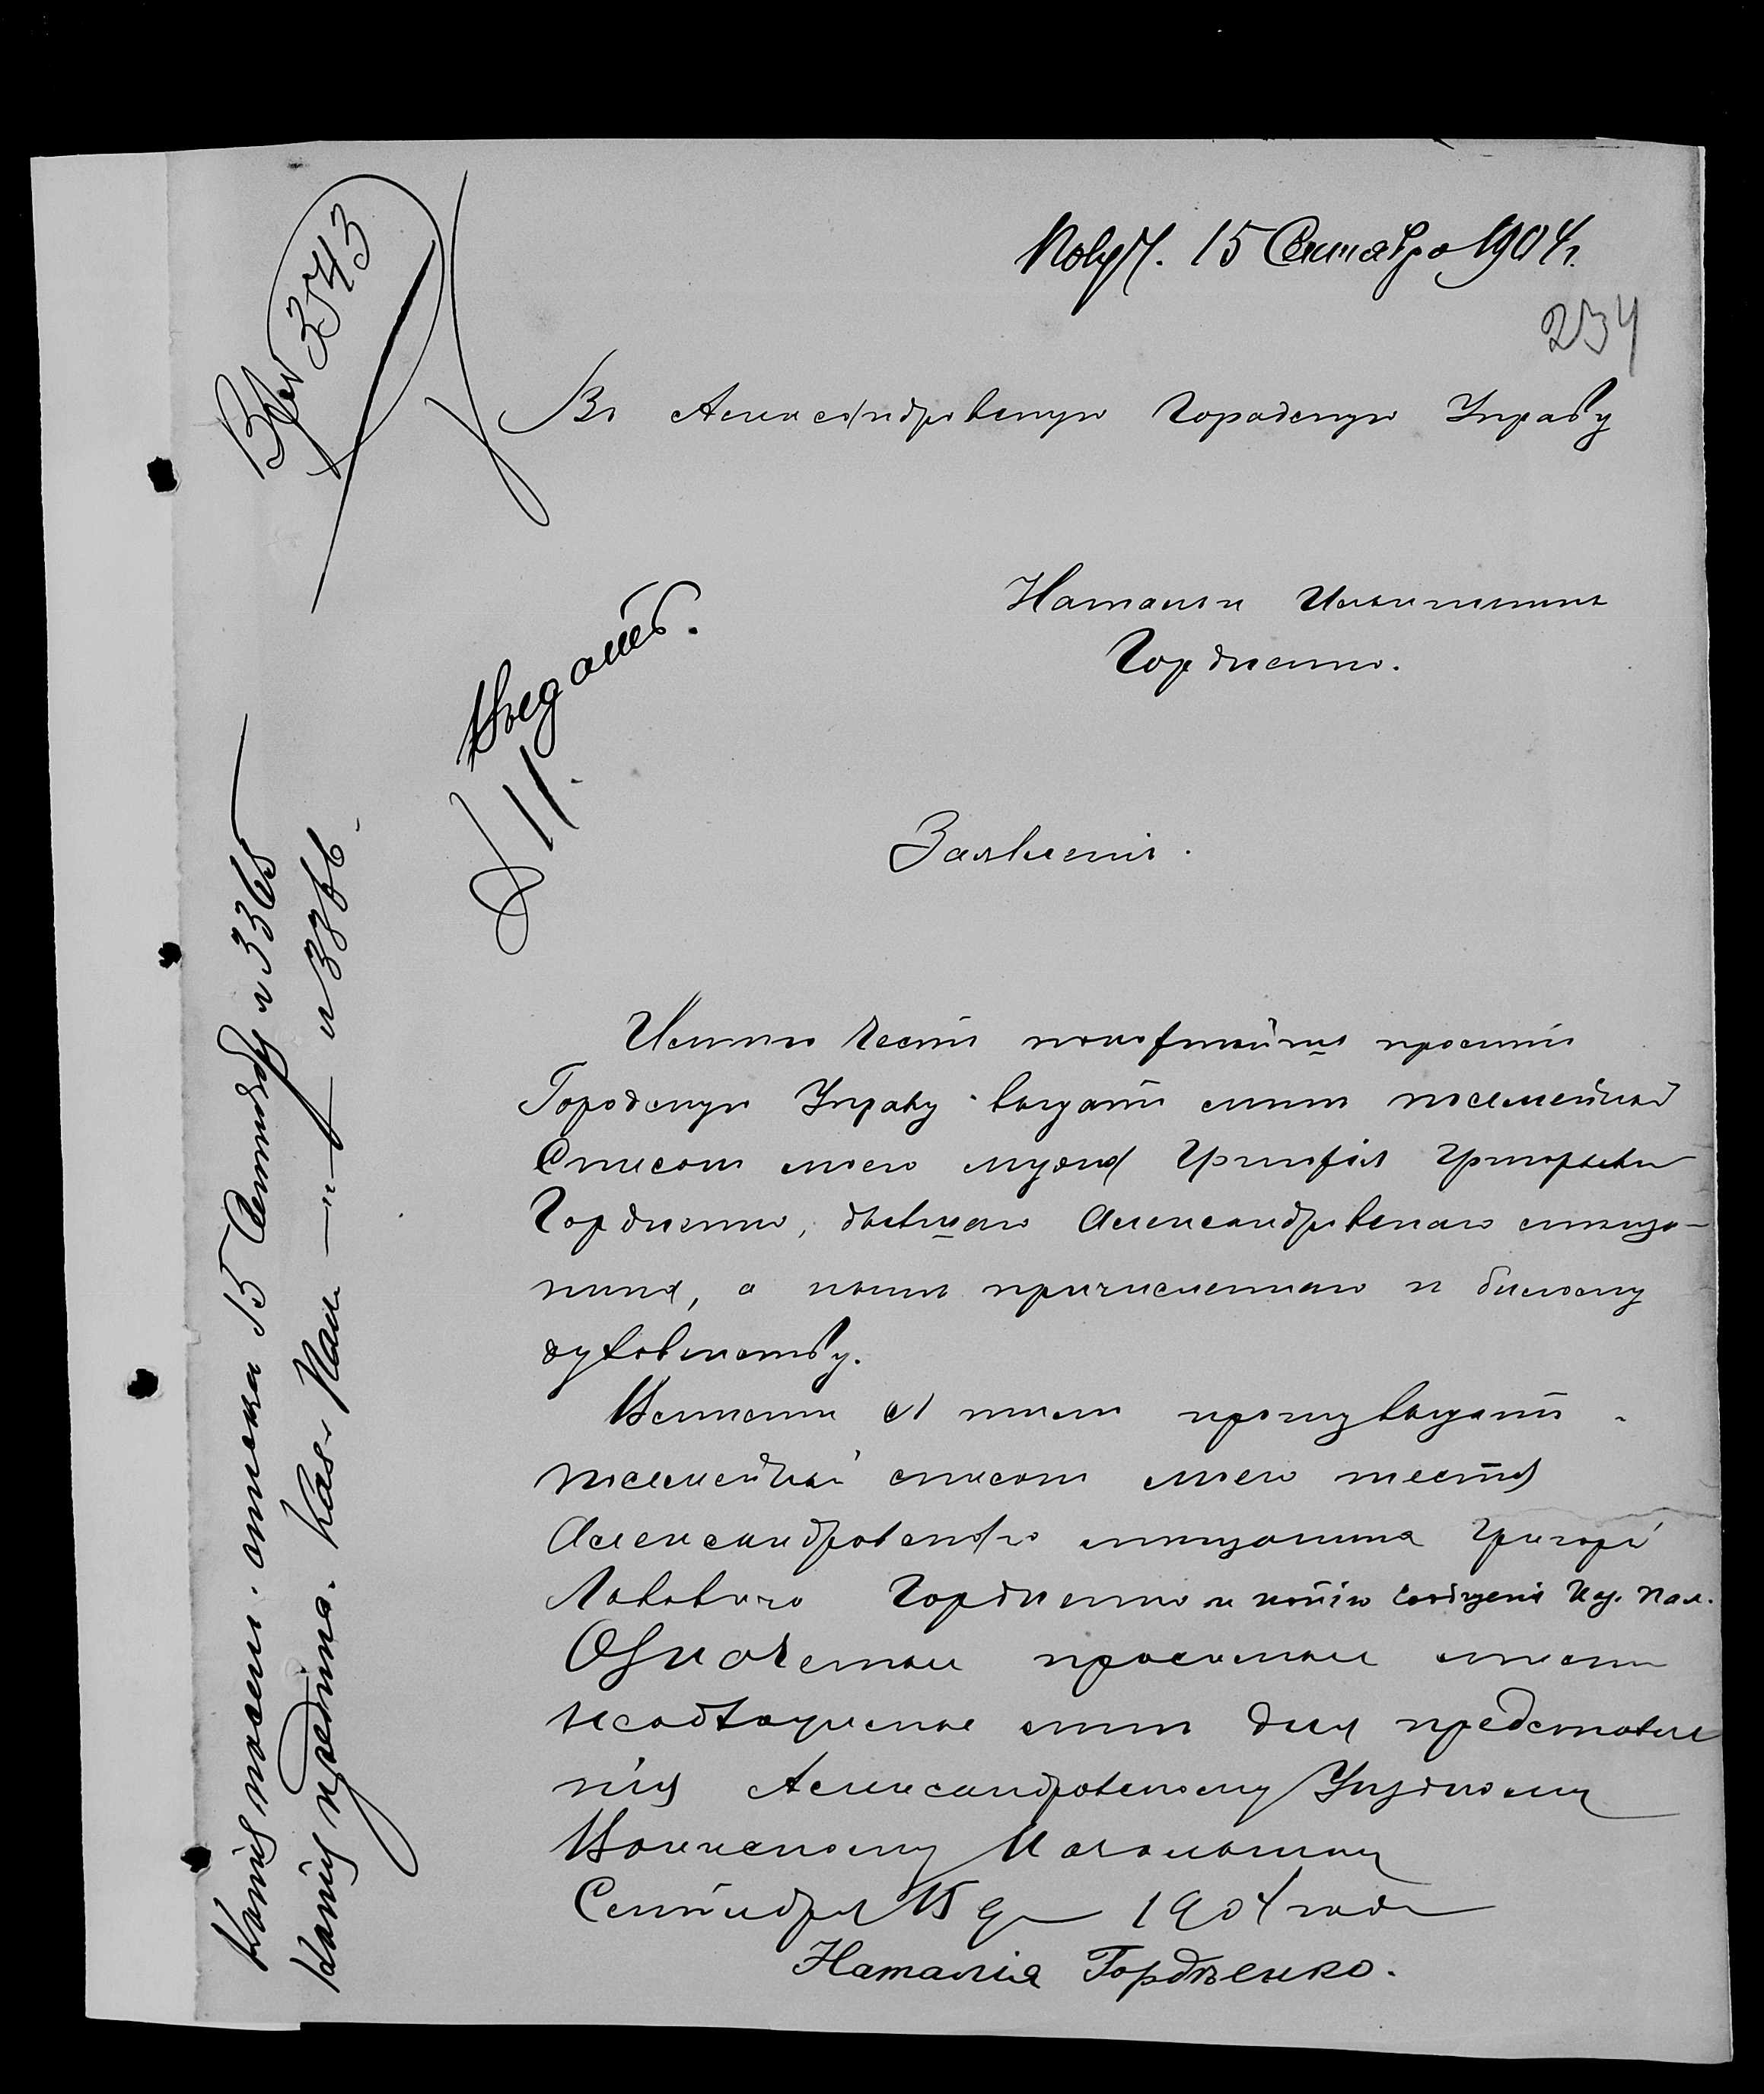 Получ. 15 Сентября 1904 г.
234
Вх № 3543
Въ Александровскую Городскую Управу
Наталіи Ильинишны
Гордѣенко.
Выдать.
Заявленіе.
Имѣю честь покорнѣйше просить
Городскую Управу выдать мнѣ посемейный
Списокъ моего мужа Григорія Григорьева
Гордѣенко, бывшаго Александровскаго мѣща-
нина, а нынѣ причисленнаго к бѣлому
духовенству.
Вмѣстѣ съ тѣмъ прошу выдать
посемейный списокъ моего тестя
Александровскаго мѣщанина Григорія
Гордѣенко и копію сообщенія Каз. Пал.
Означенные просимые списки
необходимые мнѣ для представле
нія Александровскому Уѣздному
Воинскому Начальнику
Сентября 15 дня 1904 года
Наталія Гордѣенко.
Копія посем. списка 15 Сентября № 3365
Копія предпис. Каз. Пал. — " — № 3366